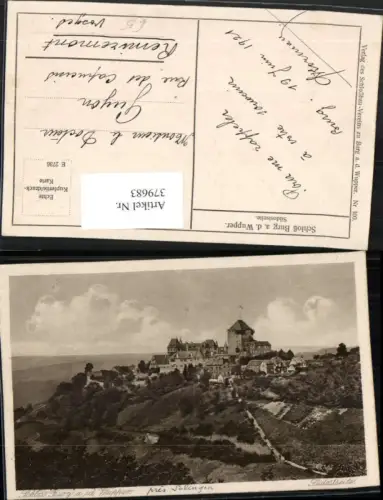 Schloß Burg a. d. Wupper.
Südostseite.
Verlag des Schloßbau-Vereins zu Burg a. d. Wupper. Nr 100.
Echte
Kupfertiefdruck-
Karte
E 2736
Artikel Nr.
379683
Burg. 19 Juin 1921
Monsieur le Docteur
Guyon
Rue des Capucins
Remiremont
Vosges
Pour me rappeler
à votre
Schloss Burg a. d. Wupper
près Solingen
Südostseite